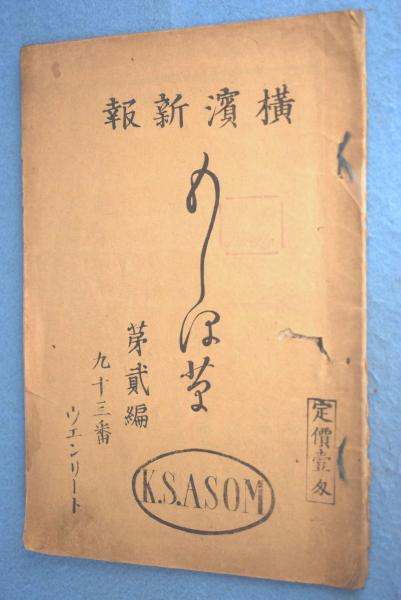 横濱新報
もしほ草
第貳編
九十三番
ウエンリート
定價壹匁
K.S.ASOM